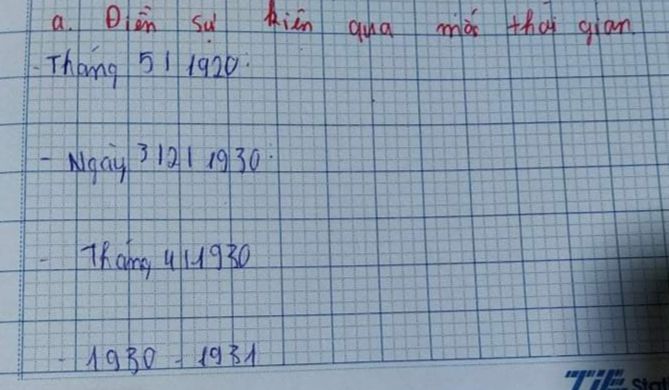 a. Điền sự kiện qua mốc thời gian
- Tháng 5/1920:
- Ngày 3/2/1930:
- Tháng 4/1930
- 1930 - 1931
TiE